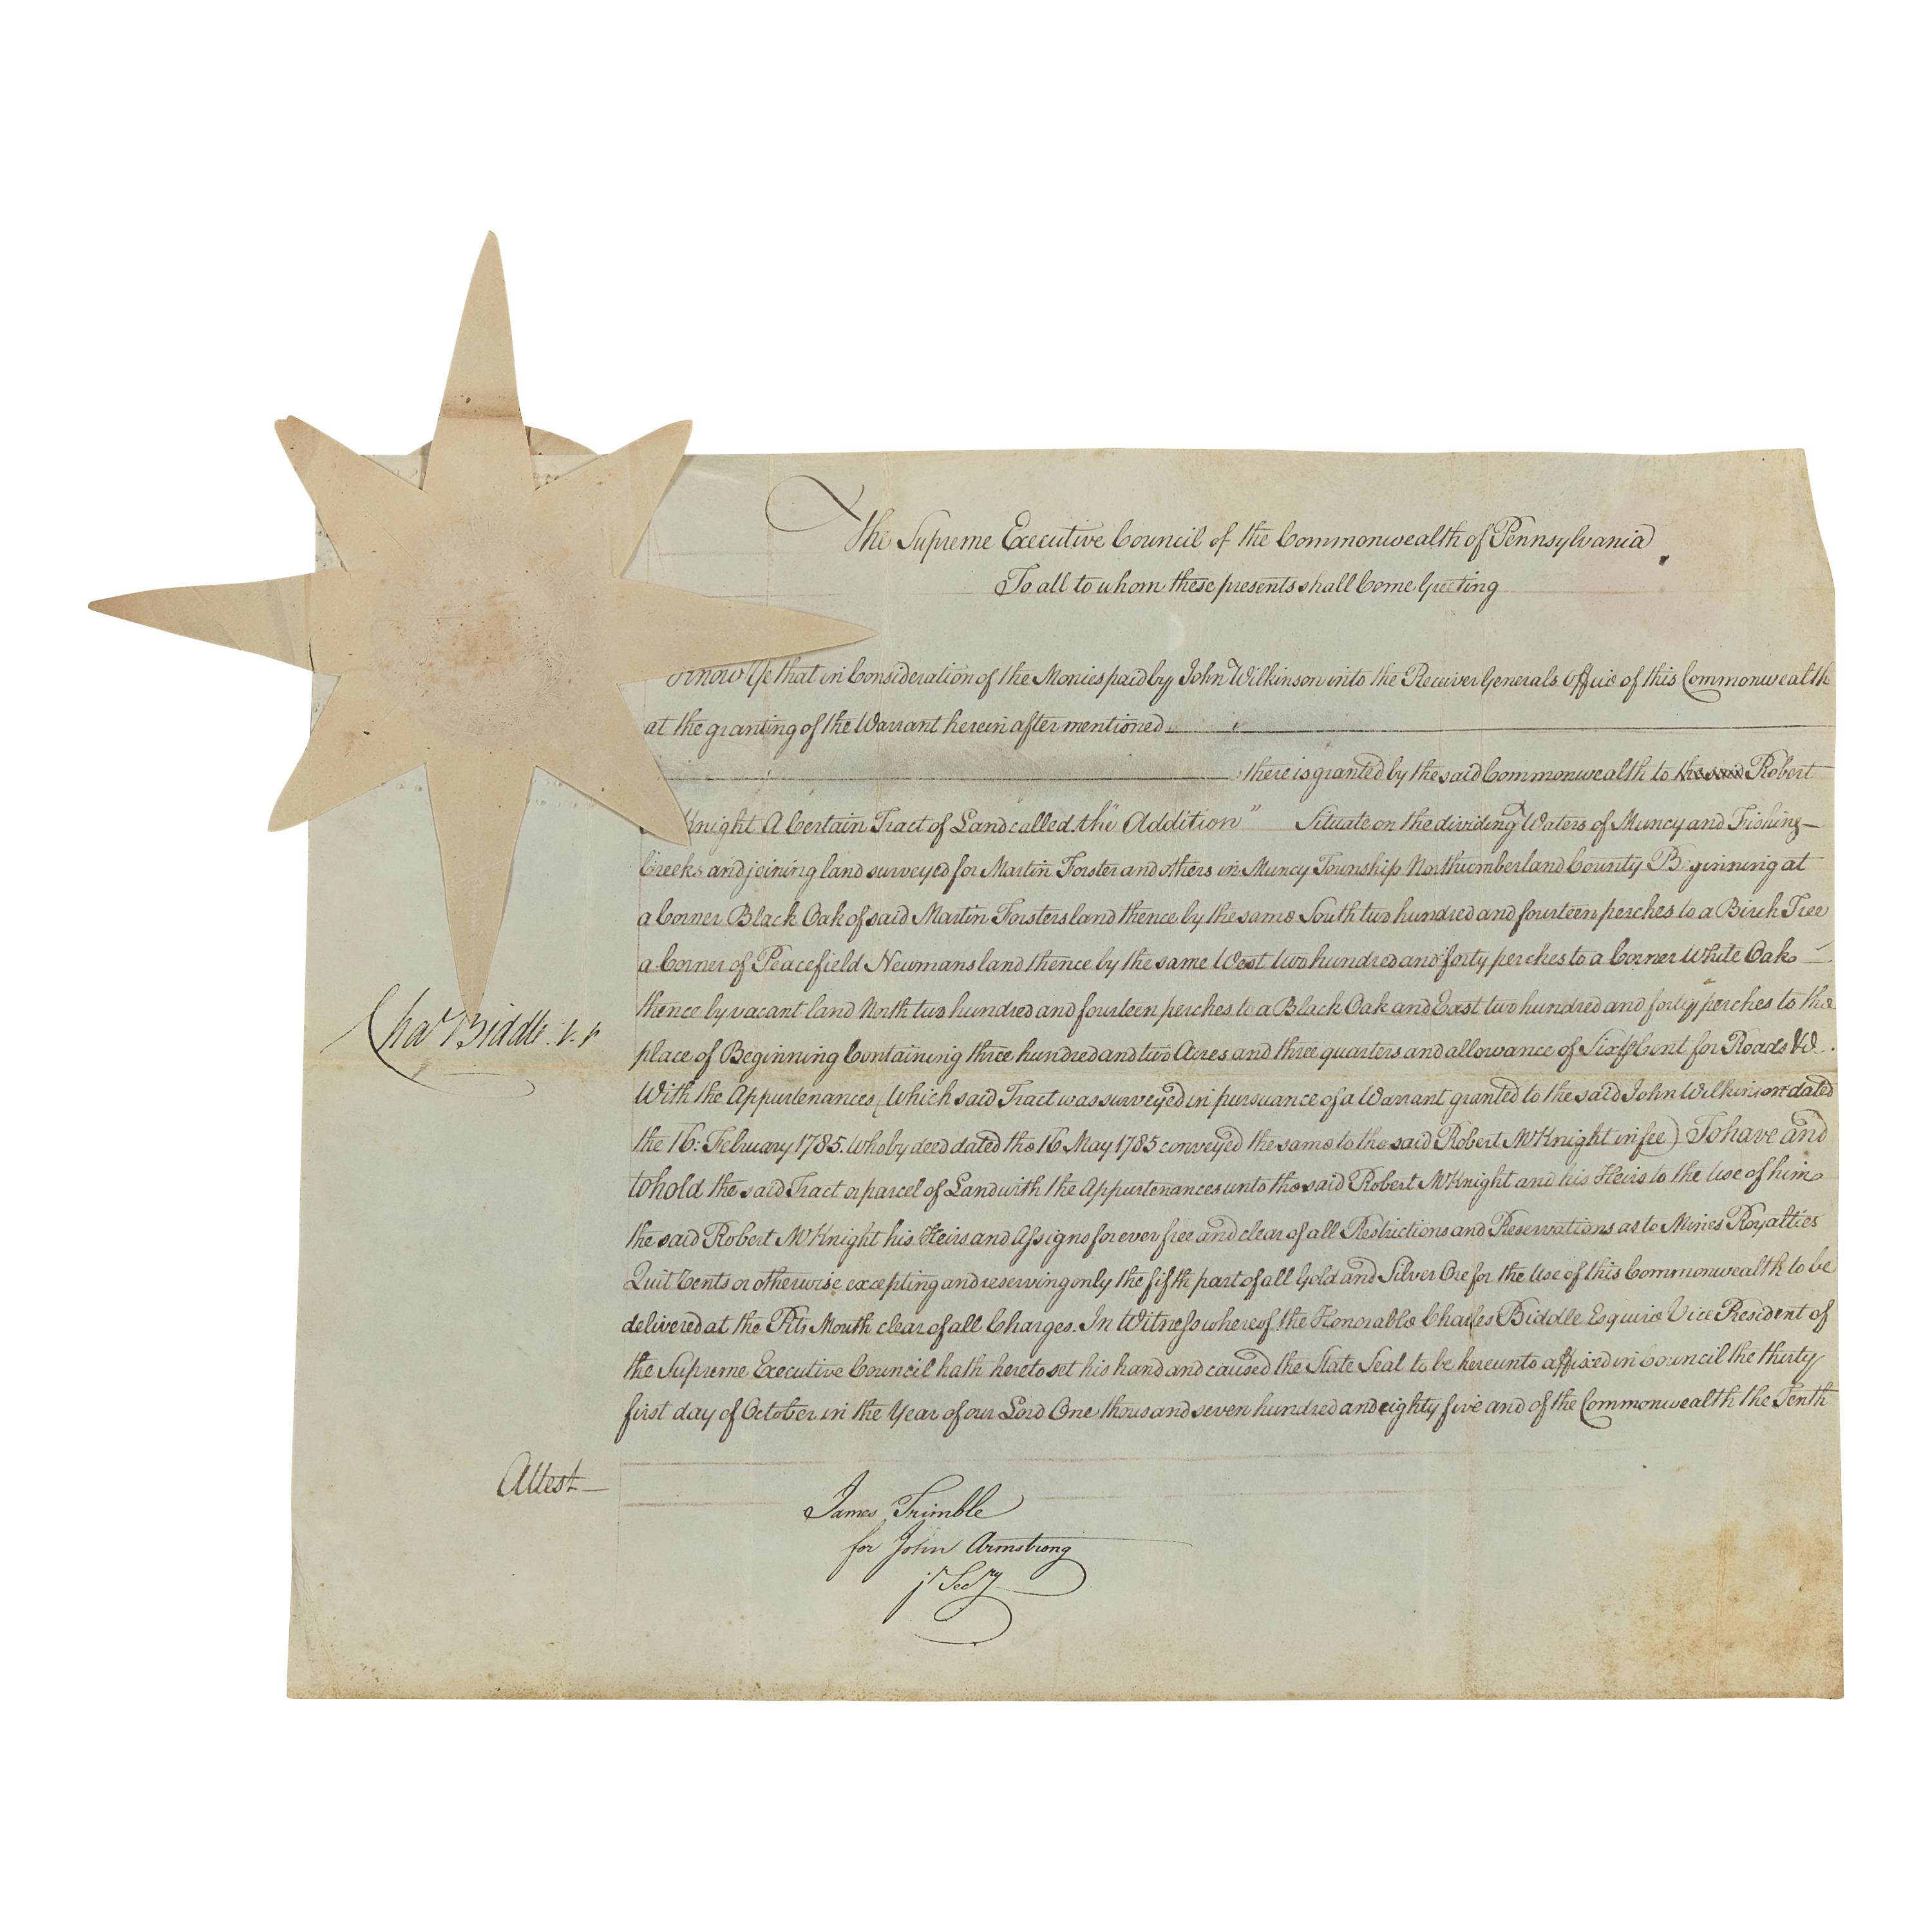 The Supreme Executive Council of the Commonwealth of Pennsylvania
To all to whom these presents shall Come Greeting
Know Ye that in Consideration of the Monies paid by John Wilkinson into the Receiver Generals Office of this Commonwealth
at the granting of the Warrant herein after mentioned
there is granted by the said Commonwealth to the said Robert
Knight A Certain Tract of Land called the "Addition" Situate on the dividing Waters of Muncy and Fishing
Creeks and joining land surveyed for Martin Forster and others in Muncy Township Northumberland County Beginning at
a Corner Black Oak of said Martin Forsters land thence by the same South two hundred and fourteen perches to a Birch Tree
a Corner of Peacefield Newmans land thence by the same West two hundred and forty perches to a Corner White Oak
thence by vacant land North two hundred and fourteen perches to a Black Oak and East two hundred and forty perches to the
place of Beginning Containing three hundred and two Acres and three quarters and allowance of Six ⅌ Cent for Roads &c.
With the Appurtenances (Which said Tract was surveyed in pursuance of a Warrant granted to the said John Wilkinson dated
the 16: February 1785. who by deed dated the 16 May 1785 conveyed the same to the said Robert McKnight in fee) To have and
to hold the said Tract or parcel of Land with the Appurtenances unto the said Robert McKnight and his Heirs to the Use of him
the said Robert McKnight his Heirs and Assigns for ever free and clear of all Restrictions and Reservations as to Mines Royalties
Quit Rents or otherwise excepting and reserving only the fifth part of all Gold and Silver Ore for the Use of this Commonwealth to be
delivered at the Pits Mouth clear of all Charges. In Witness whereof the Honorable Charles Biddle Esquire Vice President of
the Supreme Executive Council hath hereto set his hand and caused the State Seal to be hereunto affixed in Council the thirty
first day of October in the Year of our Lord One thousand seven hundred and eighty five and of the Commonwealth the Tenth
Chas Biddle V. P
Attest
James Trimble
for John Armstrong
jr Secy